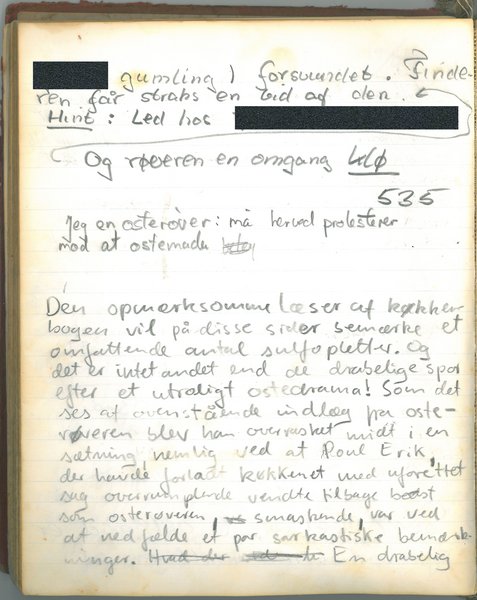 gumling) forsvundet. Finde-
ren får straks en bid af den.
Hint: Led hos
Og røveren en omgang klø
535
Jeg en osterøver: må herved protesterer
mod at ostemaden
Den opmærksomme læser af køkken
bogen vil på disse sider bemærke et
omfattende antal sulfopletter. Og
det er intet andet end de drabelige spor
efter et utroligt ostedrama! Som det
ses af ovenstående indlæg fra oste-
røveren blev han overrasket midt i en
sætning, nemlig ved at Poul Erik,
der havde forladt køkkenet med uforettet
sag overrumplende vendte tilbage bedst
som osterøveren, smaskende, var ved
at nedfælde et par sarkastiske bemærk-
ninger. Hvad der En drabelig